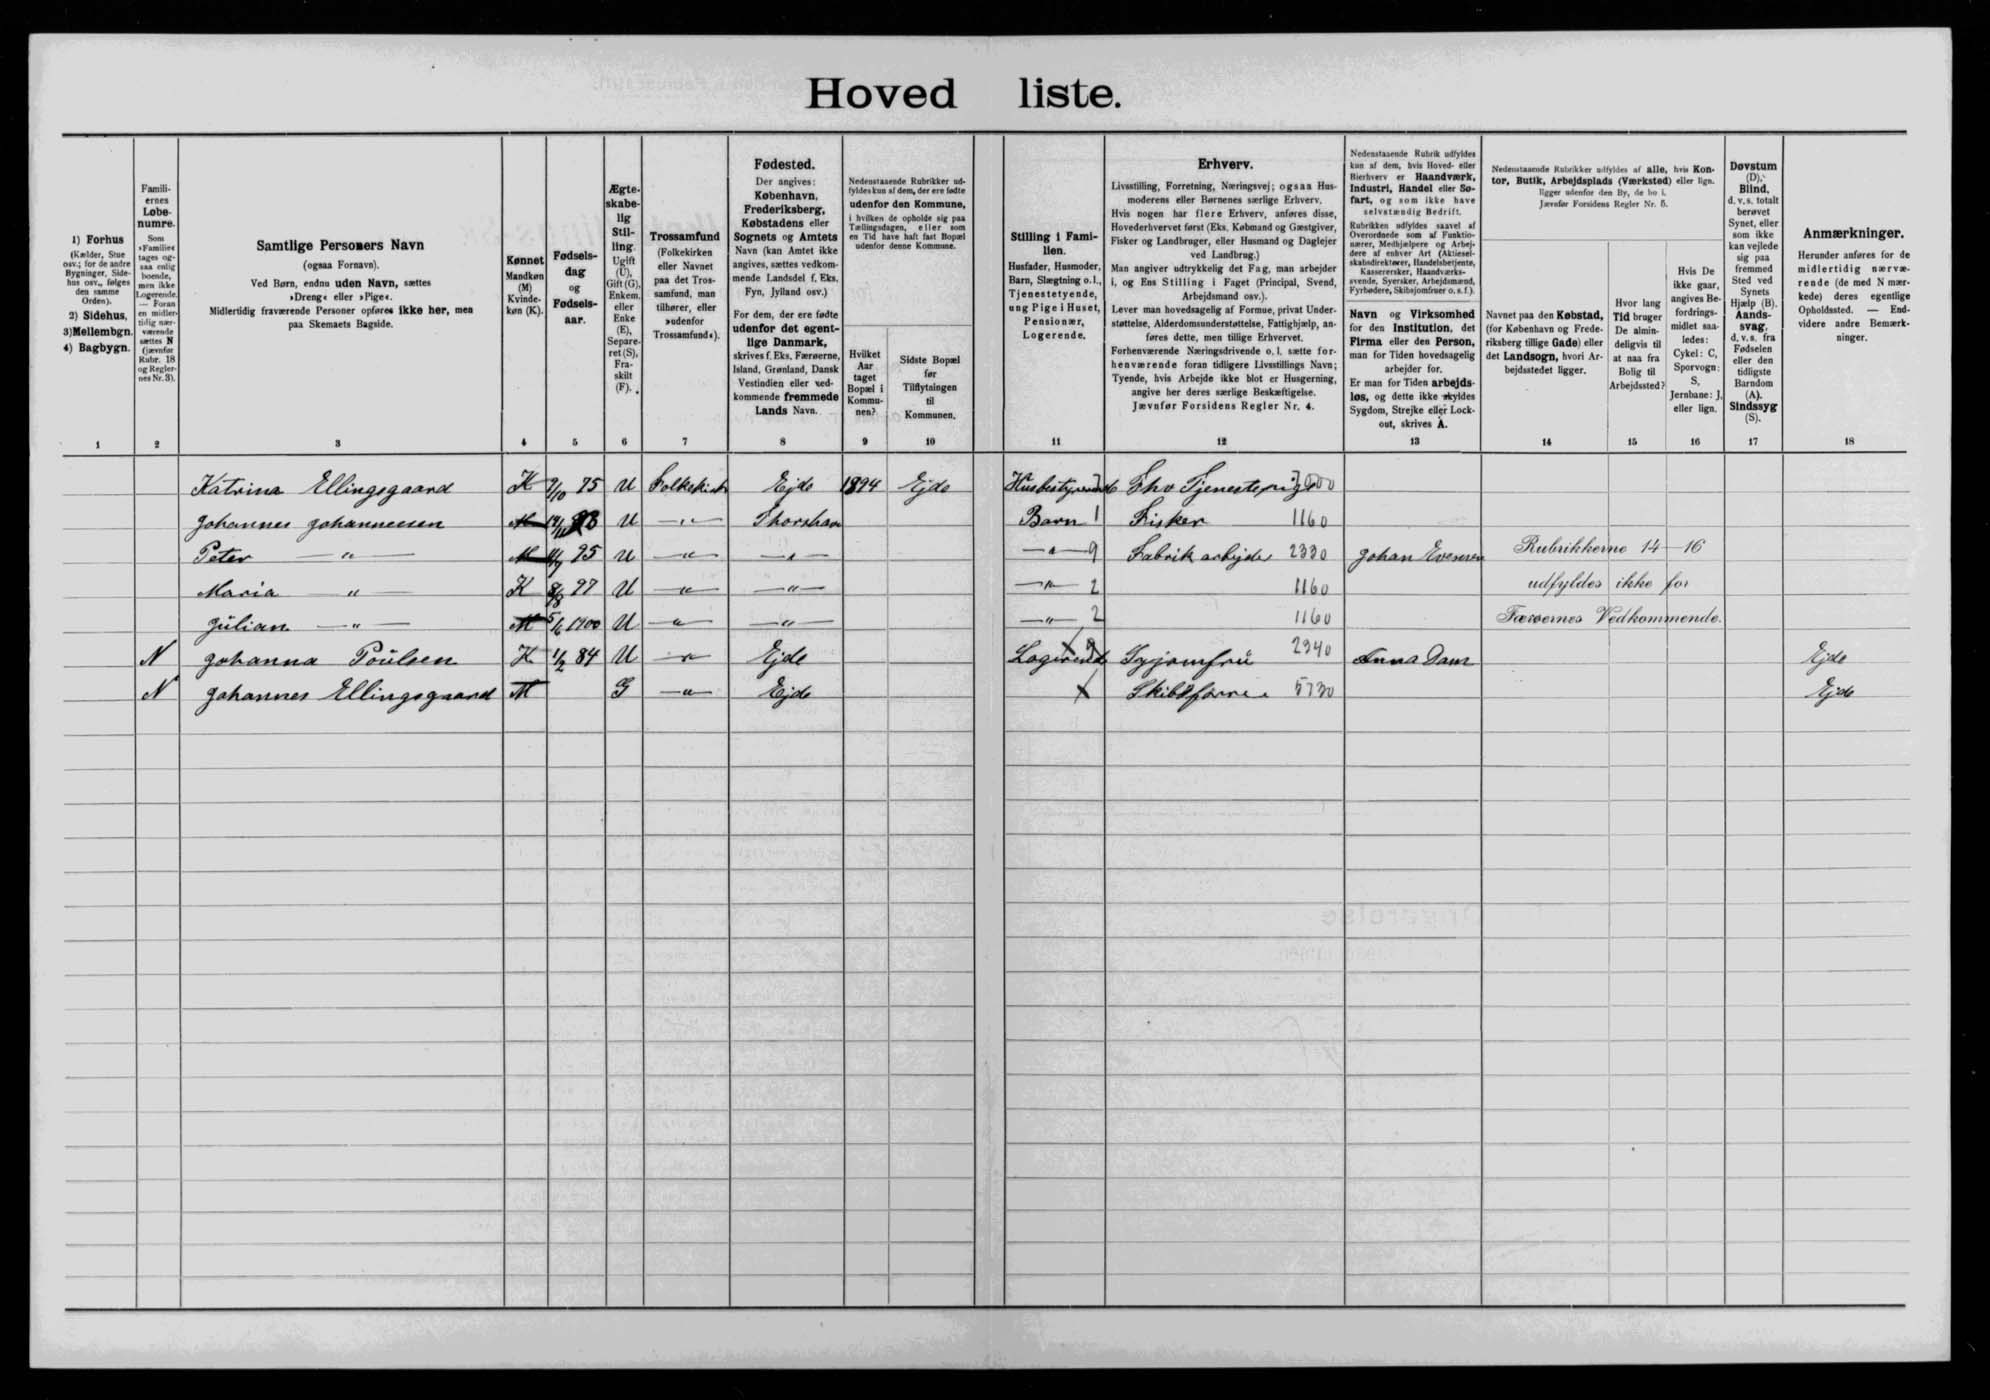 Hoved liste.
1) Forhus
(Kælder, Stue
osv.; for de andre
Bygninger, Side-
hus osv., følges
den samme
Orden).
2) Sidehus,
3) Mellembgn.
4) Bagbygn.
Famili-
ernes
Løbe-
numre.
Som
»Familie«
tages og-
saa enlig
boende,
men ikke
Logerende.
— Foran
en midler-
tidig nær-
værende
sættes N
(jævnfør
Rubr. 18
og Regler-
nes Nr. 3).
Samtlige Personers Navn
(ogsaa Fornavn).
Ved Børn, endnu uden Navn, sættes
»Dreng« eller »Pige«.
Midlertidig fraværende Personer opføres ikke her, men
paa Skemaets Bagside.
Kønnet
Mandkøn
(M)
Kvinde-
køn (K).
Fødsels-
dag
og
Fødsels-
aar.
Ægte-
skabe-
lig
Stil-
ling.
Ugift
(U),
Gift (G),
Enkem.
eller
Enke
(E),
Separe-
ret (S),
Fra-
skilt
(F).
Trossamfund
(Folkekirken
eller Navnet
paa det Tros-
samfund, man
tilhører, eller
»udenfor
Trossamfund«).
Fødested.
Der angives:
København,
Frederiksberg,
Købstadens eller
Sognets og Amtets
Navn (kan Amtet ikke
angives, sættes vedkom-
mende Landsdel f. Eks.
Fyn, Jylland osv.)
For dem, der ere fødte
udenfor det egent-
lige Danmark,
skrives f. Eks. Færøerne,
Island, Grønland, Dansk
Vestindien eller ved-
kommende fremmede
Lands Navn.
Nedenstaaende Rubrikker ud-
fyldes kun af dem, der ere fødte
udenfor den Kommune,
i hvilken de opholde sig paa
Tællingsdagen, eller som
en Tid have haft fast Bopæl
udenfor denne Kommune.
Hvilket
Aar
taget
Bopæl i
Kommu-
nen?
Sidste Bopæl
før
Tilflytningen
til
Kommunen.
Stilling i Fami-
lien.
Husfader, Husmoder,
Barn, Slægtning o. l.,
Tjenestetyende,
ung Pige i Huset,
Pensionær,
Logerende.
Erhverv.
Livsstilling, Forretning, Næringsvej; ogsaa Hus-
moderens eller Børnenes særlige Erhverv.
Hvis nogen har flere Erhverv, anføres disse,
Hovederhvervet først (Eks. Købmand og Gæstgiver,
Fisker og Landbruger, eller Husmand og Daglejer
ved Landbrug.)
Man angiver udtrykkelig det Fag, man arbejder
i, og Ens Stilling i Faget (Principal, Svend,
Arbejdsmand osv.).
Lever man hovedsagelig af Formue, privat Under-
støttelse, Alderdomsunderstøttelse, Fattighjælp, an-
føres dette, men tillige Erhvervet.
Forhenværende Næringsdrivende o. l. sætte for-
henværende foran tidligere Livsstillings Navn;
Tyende, hvis Arbejde ikke blot er Husgerning,
angive her deres særlige Beskæftigelse.
Jævnfør Forsidens Regler Nr. 4.
Nedenstaaende Rubrik udfyldes
kun af dem, hvis Hoved- eller
Bierhverv er Haandværk,
Industri, Handel eller Sø-
fart, og som ikke have
selvstændig Bedrift.
Rubrikken udfyldes saavel af
Overordede som af Funktio-
nærer, Medhjælpere og Arbej-
dere af enhver Art (Aktiesel-
skabsdirektører, Handelsbetjente,
Kasserersker, Haandværks-
svende, Syersker, Arbejdsmænd,
Fyrbødere, Skibsjomfruer o. s. f.).
Navn og Virksomhed
for den Institution, det
Firma eller den Person,
man for Tiden hovedsagelig
arbejder for.
Er man for Tiden arbejds-
løs, og dette ikke skyldes
Sygdom, Strejke eller Lock-
out, skrives A.
Nedenstaaende Rubrikker udfyldes af alle, hvis Kon-
tor, Butik, Arbejdsplads (Værksted) eller lign.
ligger udenfor den By, de bo i.
Jævnfør Forsidens Regler Nr. 5.
Navnet paa den Købstad,
(for København og Frede-
riksberg tillige Gade) eller
det Landsogn, hvori Ar-
bejdsstedet ligger.
Hvor lang
Tid bruger
De almin-
deligvis til
at naa fra
Bolig til
Arbejdssted?
Hvis De
ikke gaar,
angives Be-
fordrings-
midlet saa-
ledes:
Cykel: C,
Sporvogn:
S,
Jernbane: J,
eller lign.
Døvstum
(D),
Blind,
d. v. s. totalt
berøvet
Synet, eller
som ikke
kan vejlede
sig paa
fremmed
Sted ved
Synets
Hjælp (B).
Aands-
svag,
d. v. s. fra
Fødselen
eller den
tidligste
Barndom
(A).
Sindssyg
(S).
Anmærkninger.
Herunder anføres for de
midlertidig nærvæ-
rende (de med N mær-
kede) deres egentlige
Opholdssted. — End-
videre andre Bemærk-
ninger.
1 2 3 4 5 6 7 8 9 10 11 12 13 14 15 16 17 18
Katrina Ellingsgaard K 9/10 75 U Folkekirk Ejde 1894 Ejde Husbestyrerinde Fhv Tjenestepige
Johannes Johannesen M U — „ — Thorshavn Barn 1 Fisker 1160
Peter — „ — M 95 U — „ — — „ — — „ — 9 Fabrikarbejder 2330 Johan Evensen Rubrikkerne 14 — 16
Maria — „ — K 8/8 97 U — „ — — „ — — „ — 2 1160 udfyldes ikke for
Julian — „ — M 5/6 1900 U — „ — — „ — — „ — 2 1160 Færøernes Vedkommende.
N Johanna Poulsen K 1/2 84 U — „ — Ejde Logerende Syjomfru 2340 Anna Dam Ejde
N Johannes Ellingsgaard M G — „ — Ejde x Skibsfører 5730 Ejde